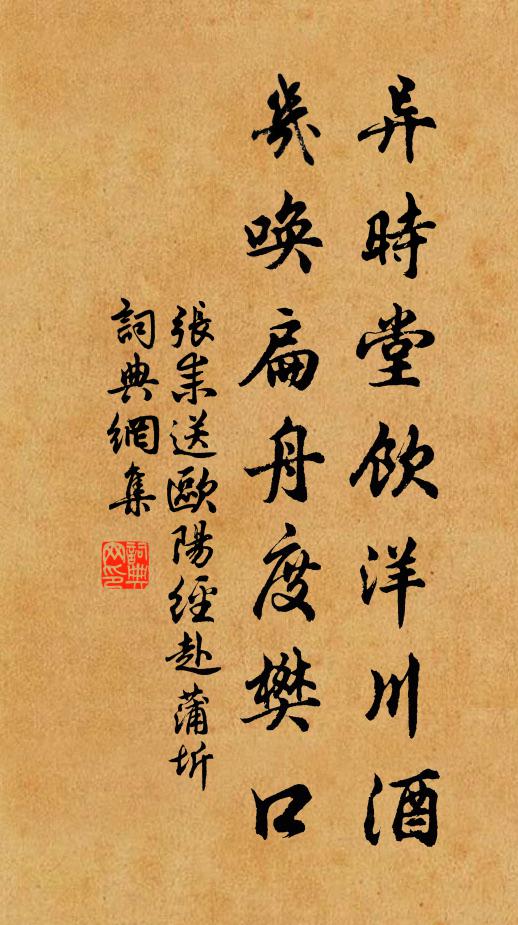 异時堂飲洋川酒
幾唤扁舟度樊口
張耒送歐陽經赴蒲圻
詞典網集
詞典网印